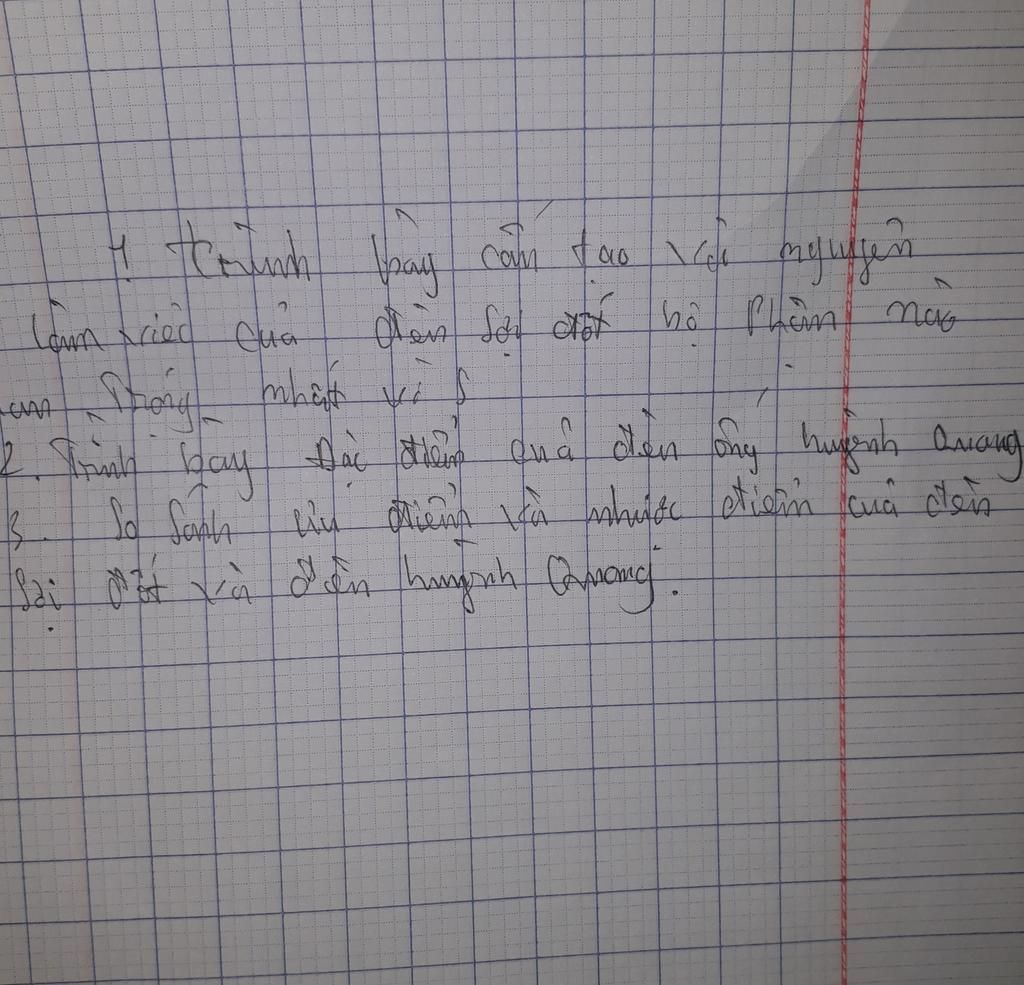 1 Trình bày cấu tạo và nguyên
làm việc của đèn sợi đốt bộ phận nào
quan trọng nhất vì s
2. Trình bày Đặc điểm của đèn ống huỳnh Quang
3. So Sánh ưu điểm và nhược điểm của đèn
Sợi đốt và đèn huỳnh Quang.